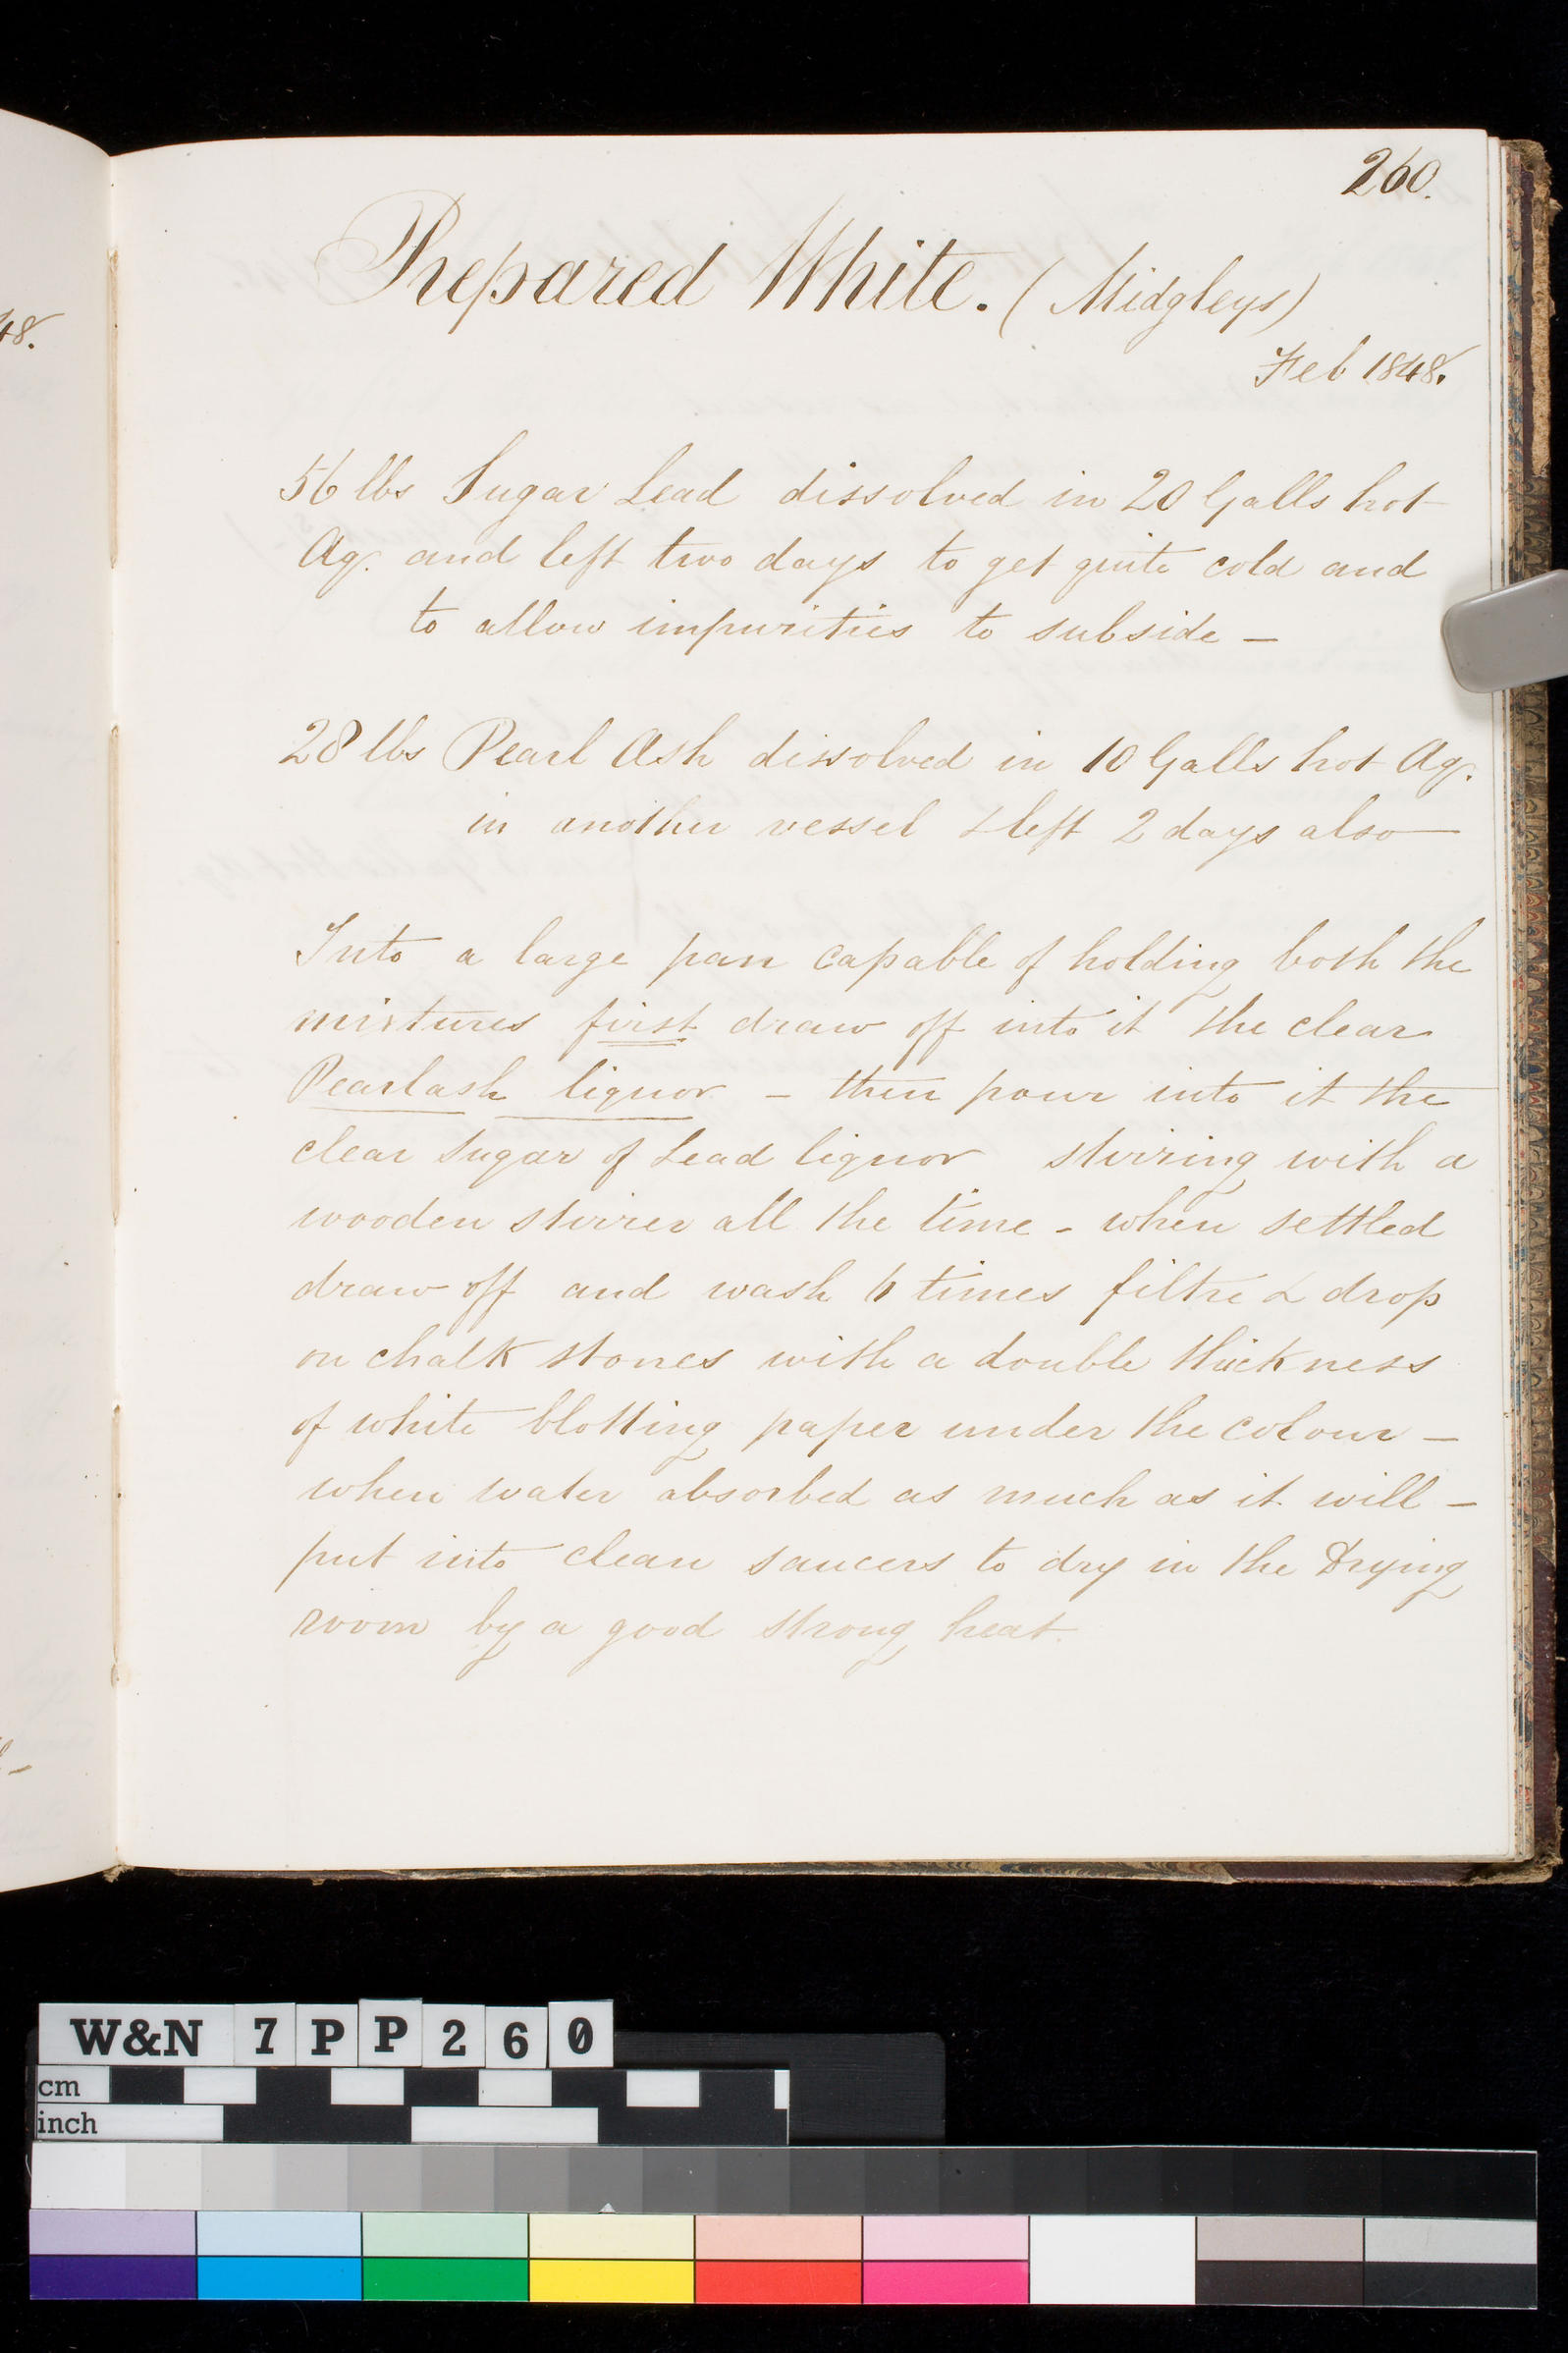 260.
Prepared White. (Midgleys)
Feb 1848.
48.
56 lbs Sugar Lead dissolved in 20 Galls hot
Aq. and left two days to get quite cold and
to allow impurities to subside –
28 lbs Pearl Ash dissolved in 10 Galls hot Aq.
in another vessel & left 2 days also
Into a large pan capable of holding both the
mixtures first draw off into it the clear
Pearlash liquor – then pour into it the
clear Sugar of Lead liquor stirring with a
wooden stirrer all the time – when settled
draw off and wash 6 times filtre & drop
on chalk stones with a double thickness
of white blotting paper under the colour –
when water absorbed as much as it will –
put into clean saucers to dry in the Drying
room by a good strong heat.
W&N 7PP260
cm
inch